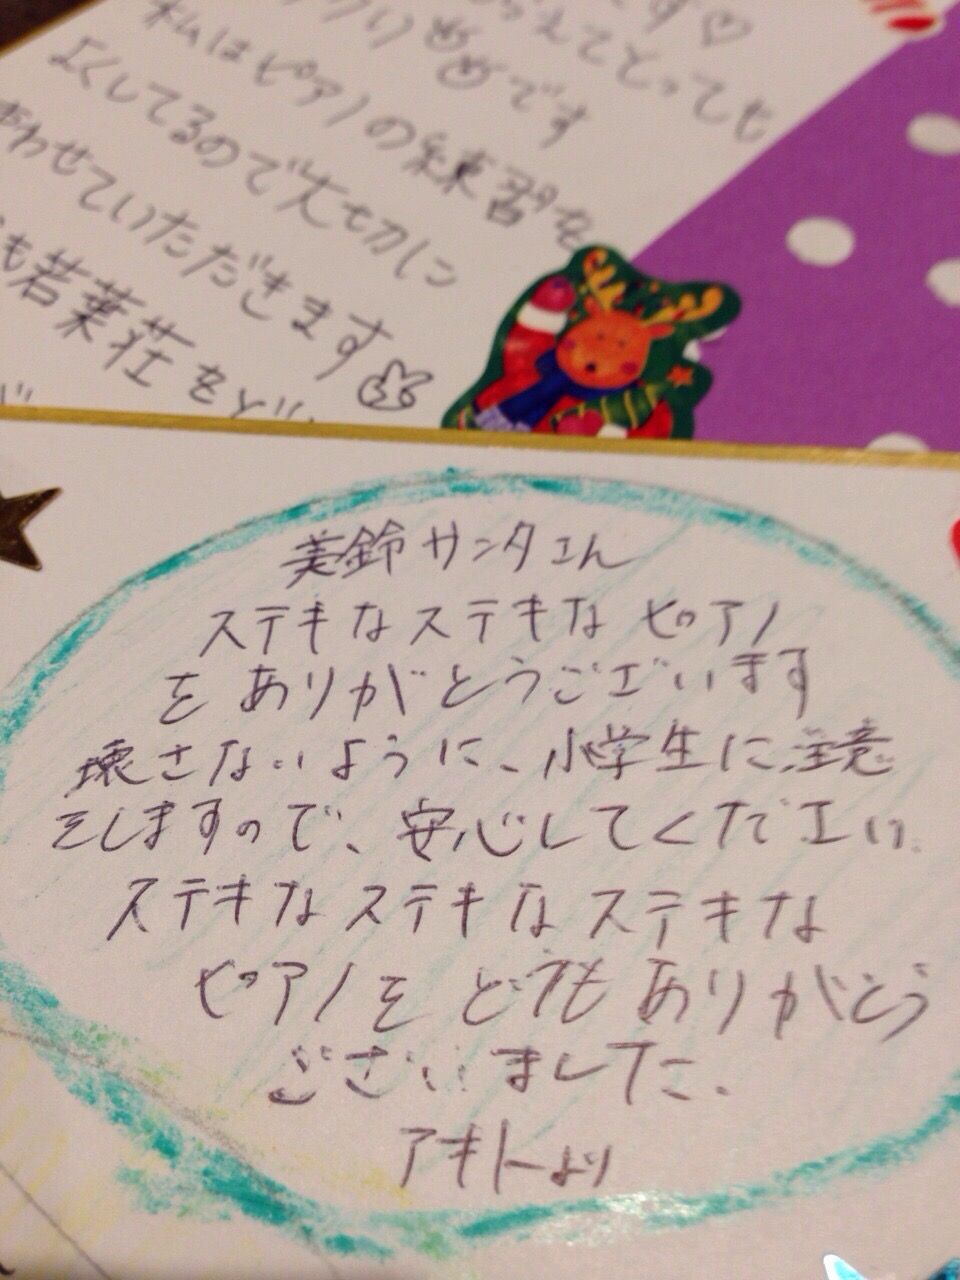 す♡
えてとっても
です
私はピアノの練習を
よくしてるので大切に
わせていただきます
も若葉荘をど
美鈴サンタさん
ステキなステキなピアノ
をありがとうございます
壊さないように、小学生に注意
をしますので、安心してください。
ステキなステキなステキな
ピアノをどうもありがとう
ございました。
アキトより